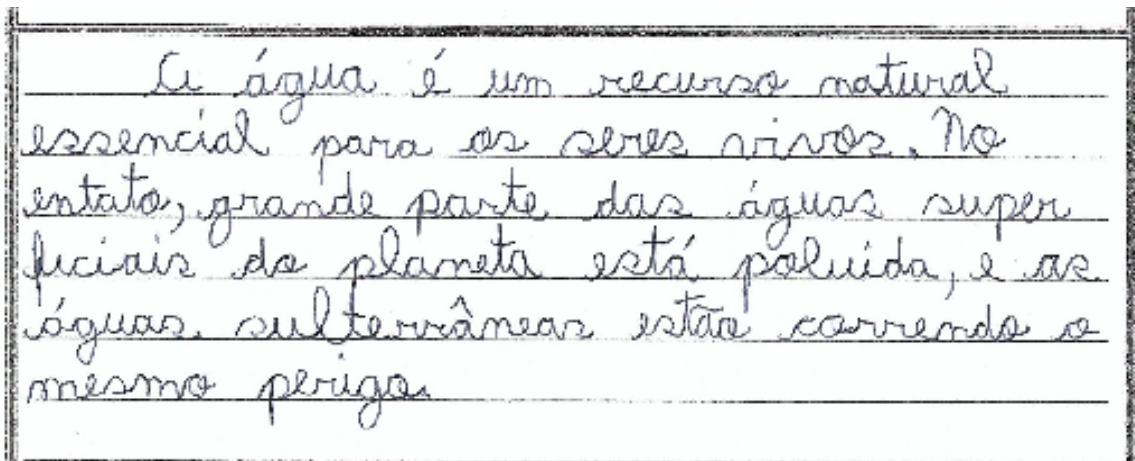 A água é um recurso natural
essencial para os seres vivos. No
entato, grande parte das águas super
ficiais do planeta está poluída, e as
águas sulterrâneas estão correndo o
mesmo perigo.